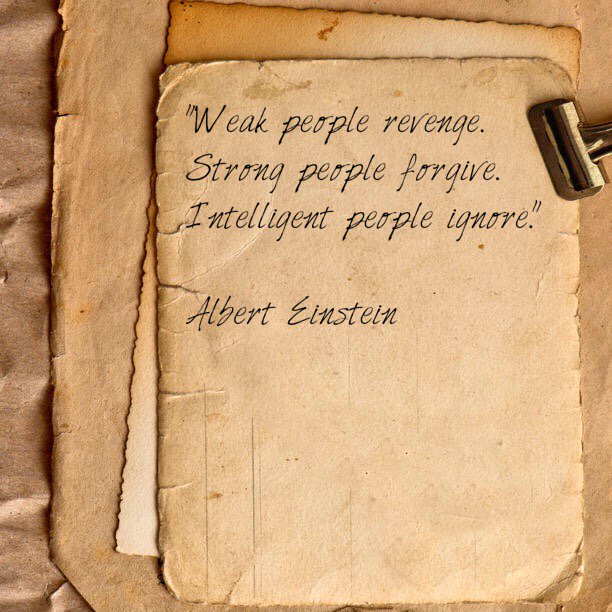 "Weak people revenge.
Strong people forgive.
Intelligent people ignore."
Albert Einstein